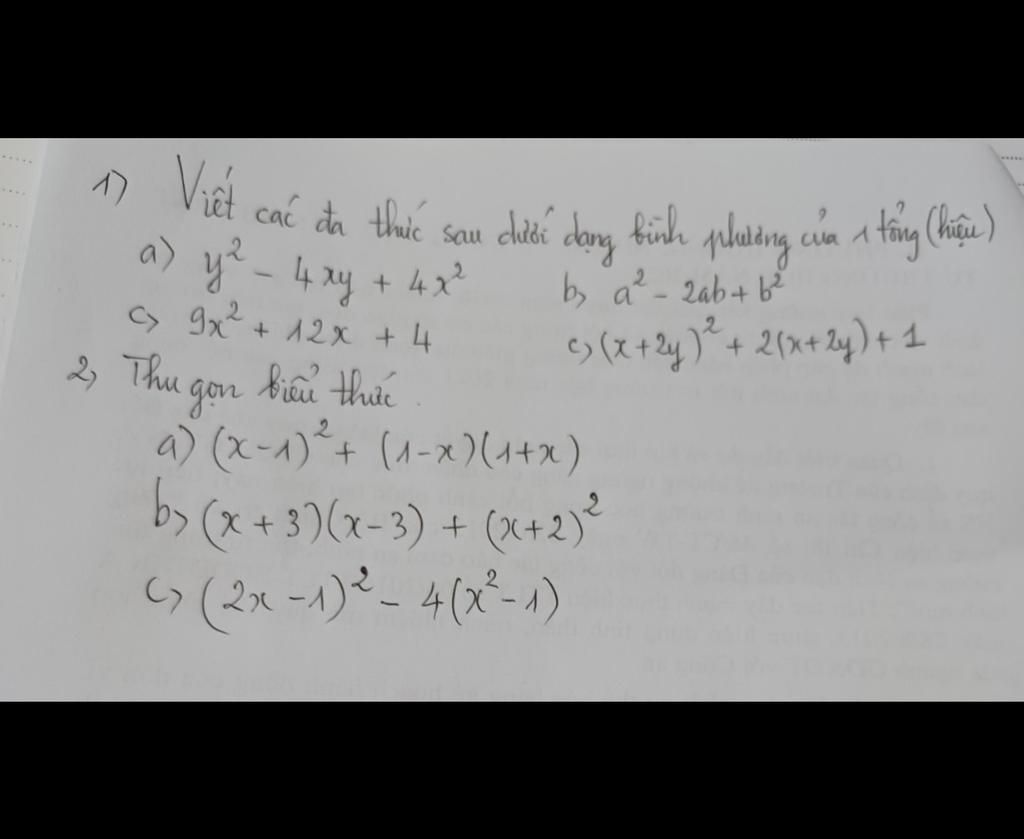 1) Viết các đa thức sau dưới dạng bình phương của 1 tổng (hiệu)
a) y² - 4xy + 4x² b) a² - 2ab + b²
c) 9x² + 12x + 4 c) (x+2y)² + 2(x+2y) + 1
2, Thu gọn biểu thức.
a) (x-1)² + (1-x)(1+x)
b) (x+3)(x-3) + (x+2)²
c) (2x-1)² - 4(x²-1)